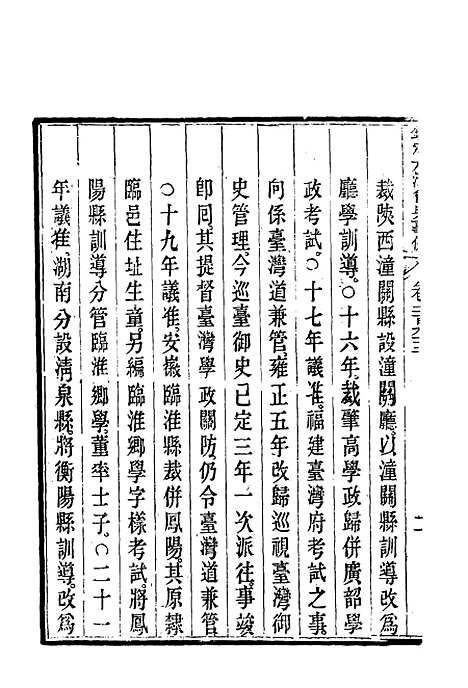 裁陝西潼關縣設潼關廳。以潼關縣訓導改爲
廳學訓導。○十六年。裁肇高學政歸併廣韶學
政考試。○十七年議准。福建臺灣府考試之事。
向係臺灣道兼管。雍正五年改歸巡視臺灣御
史管理。今巡臺御史已定三年一次派往。事竣
卽囘。其提督臺灣學政關防。仍令臺灣道兼管。
○十九年議准。安徽臨淮縣裁併鳳陽。其原隸
臨邑住址生童。另編臨淮鄉學字樣考試。將鳳
陽縣訓導分管臨淮鄉學。董率士子。○二十一
年議准。湖南分設淸泉縣。將衡陽縣訓導。改爲